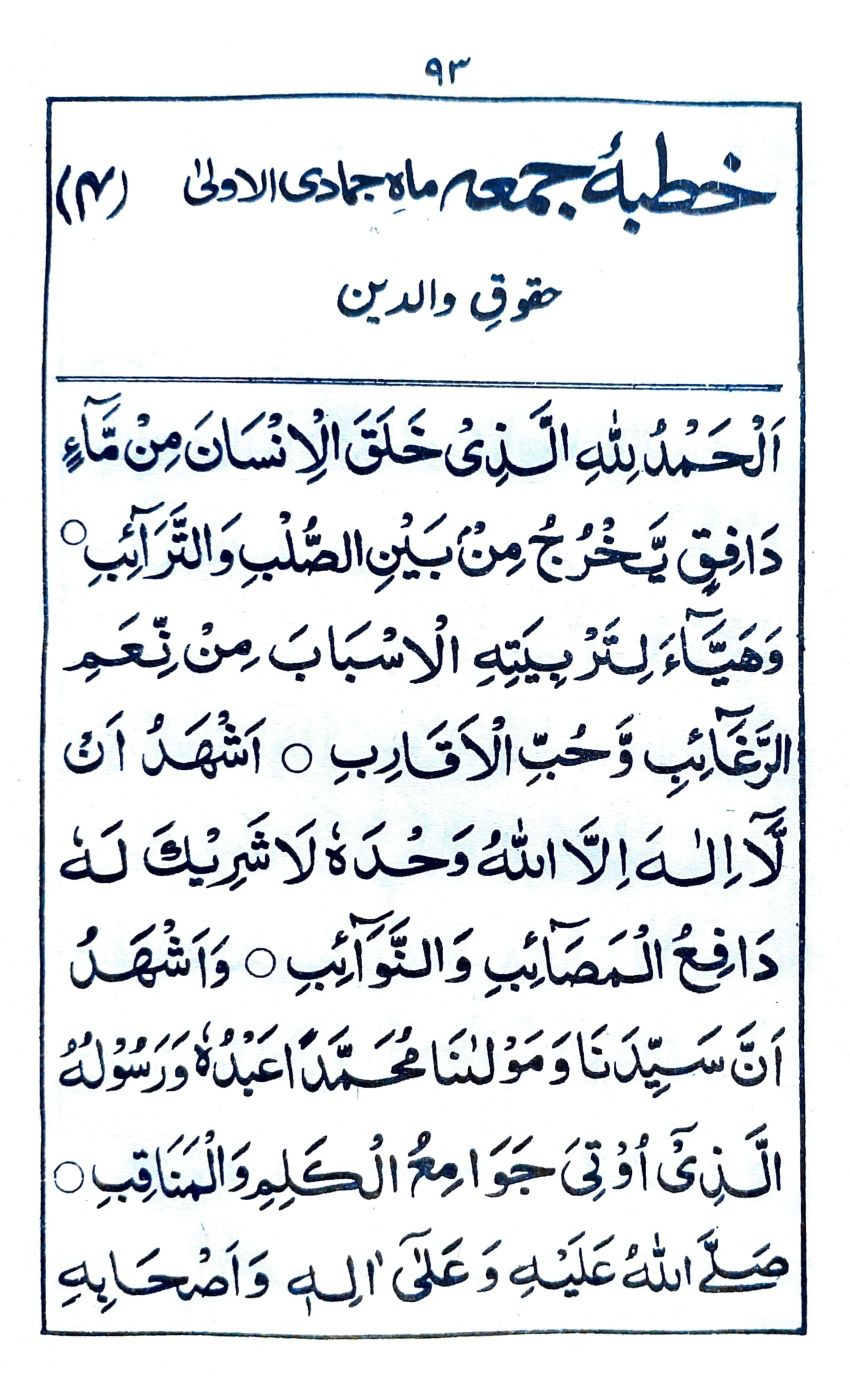 ۹۳
خطبۂ جمعہ ماہِ جمادی الاولیٰ (۴)
حقوقِ والدین
اَلْحَمْدُ لِلّٰهِ الَّذِیْ خَلَقَ الْاِنْسَانَ مِنْ مَّآءٍ
دَافِقٍ یَّخْرُجُ مِنْۢ بَیْنِ الصُّلْبِ وَالتَّرَآئِبِ ○
وَهَیَّآءَ لِتَرْبِیَتِهِ الْاَسْبَابَ مِنْ نِّعَمِ
الرَّغَآئِبِ وَّحُبِّ الْاَقَارِبِ ○ اَشْهَدُ اَنْ
لَّآ اِلٰهَ اِلَّا اللّٰهُ وَحْدَهٗ لَا شَرِیْكَ لَهٗ
دَافِعُ الْمَصَآئِبِ وَالنَّوَآئِبِ ○ وَاَشْهَدُ
اَنَّ سَیِّدَنَا وَمَوْلٰىنَا مُحَمَّدًا عَبْدُهٗ وَرَسُوْلُهُ
الَّذِیْٓ اُوْتِیَ جَوَامِعُ الْكَلِمِ وَالْمَنَاقِبِ ○
صَلَّے اللّٰهُ عَلَیْهِ وَعَلٰٓی اٰلِهٖ وَاَصْحَابِهِ